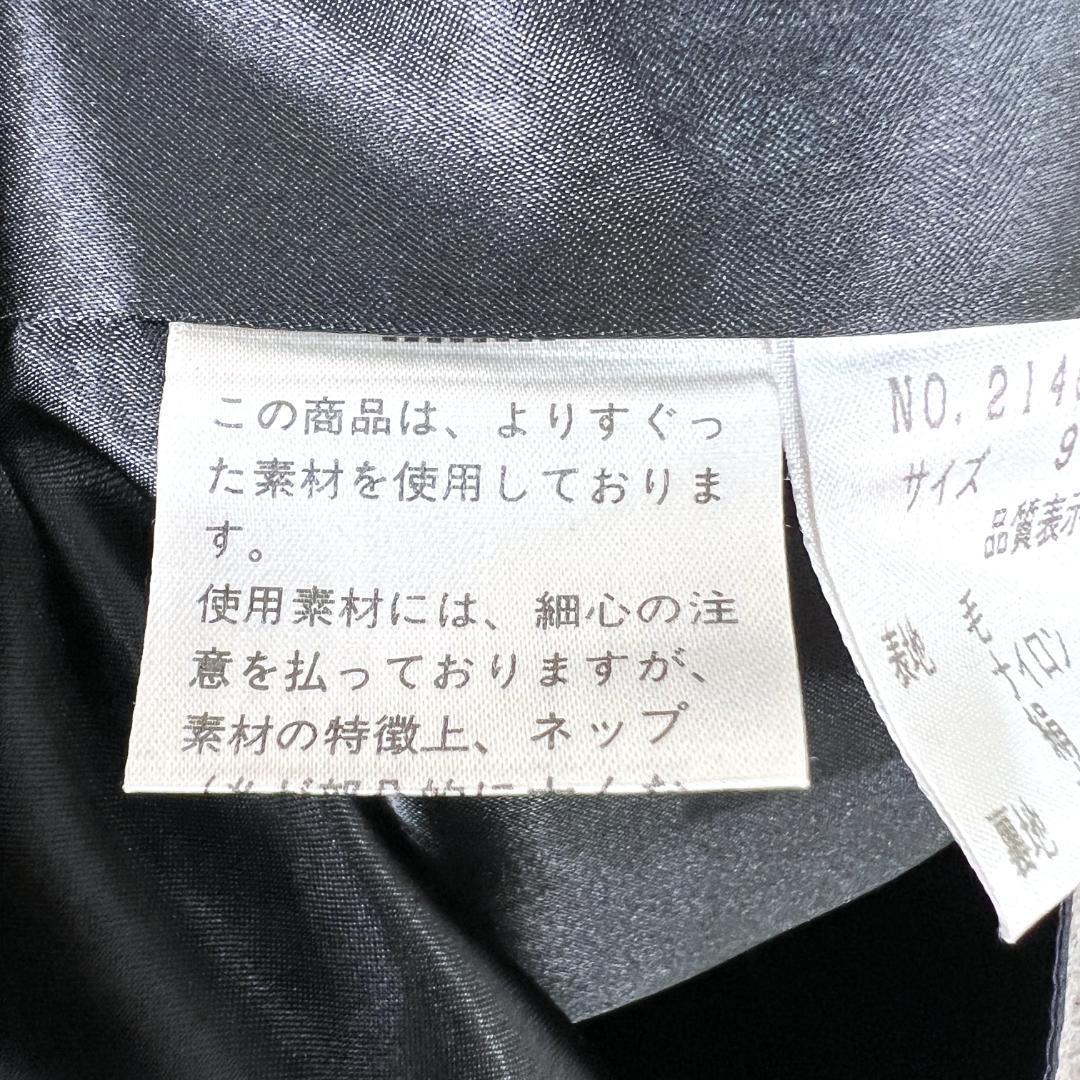 この商品は、よりすぐっ
た素材を使用しておりま
す。
使用素材には、細心の注
意を払っておりますが、
素材の特徴上、ネップ
NO.214
サイズ 9
品質表示
表地 毛
ナイロン
裏地